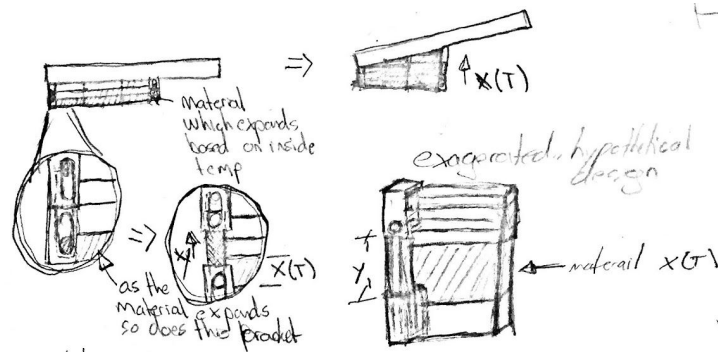 => X(T)
material
which expands
based on inside
temp
exagerated, hypothetical
design
=> X
X(T)
as the
material expands
so does this bracket
Y
materail X(T)